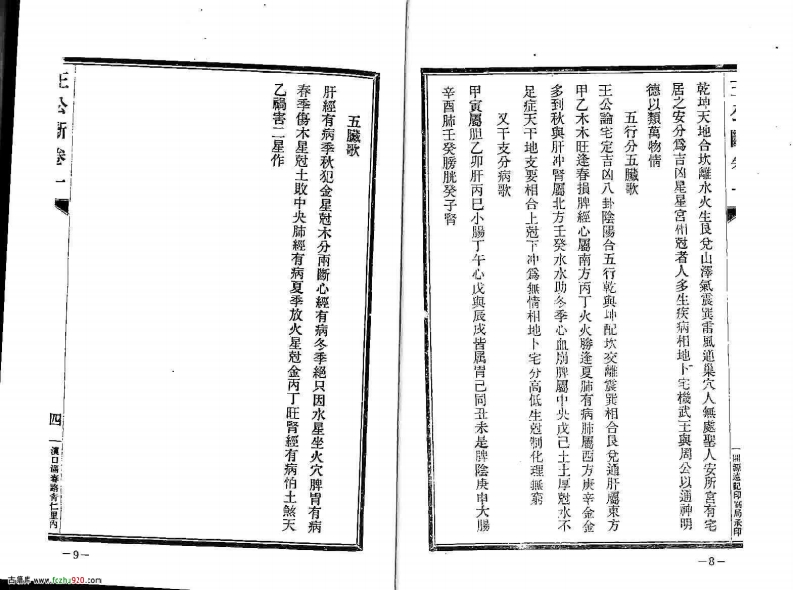 王公斷卷一
乾坤天地合坎離水火生艮兌山澤氣震巽雷風通巢穴人無處聖人安所宮有宅
居之安分爲吉凶尾星宮相尅者人多生疾病相地卜宅機武王與周公以通神明
德以類萬物情
五行分五臟歌
王公論宅定吉凶八卦陰陽合五行乾與坤配坎交離震巽相合艮兌通肝屬東方
甲乙木木旺逢春損脾經心屬南方丙丁火火勝逢夏肺有病肺屬西方庚辛金金
多到秋與肝冲腎屬北方壬癸水水助冬季心血崩脾屬中央戊己土土厚尅水不
足症天干地支要相合上尅下冲爲無情相地卜宅分高低生尅制化理無窮
又干支分病歌
甲寅屬胆乙卯肝丙巳小腸丁午心戊與辰戌皆属胃己同丑未是脾陰庚申大腸
辛酉肺壬癸膀胱癸子腎
—8—
五臟歌
肝經有病季秋犯金星尅木分兩斷心經有病冬季絕只因水星坐火穴脾胃有病
春季傷木星尅土敗中央肺經有病夏季放火星尅金丙丁旺腎經有病怕土煞天
乙禍害二星作
王公斷卷一
四
—9—
www.fczhu920.com